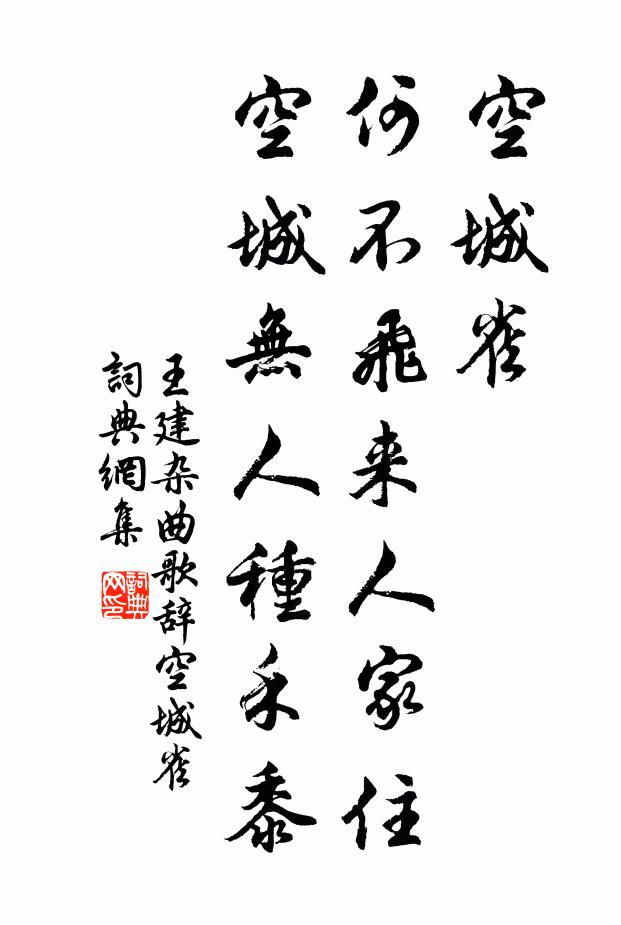 空城雀
何不飛来人家住
空城無人種禾黍
王建杂曲歌辞空城雀
詞典網集
詞典网印